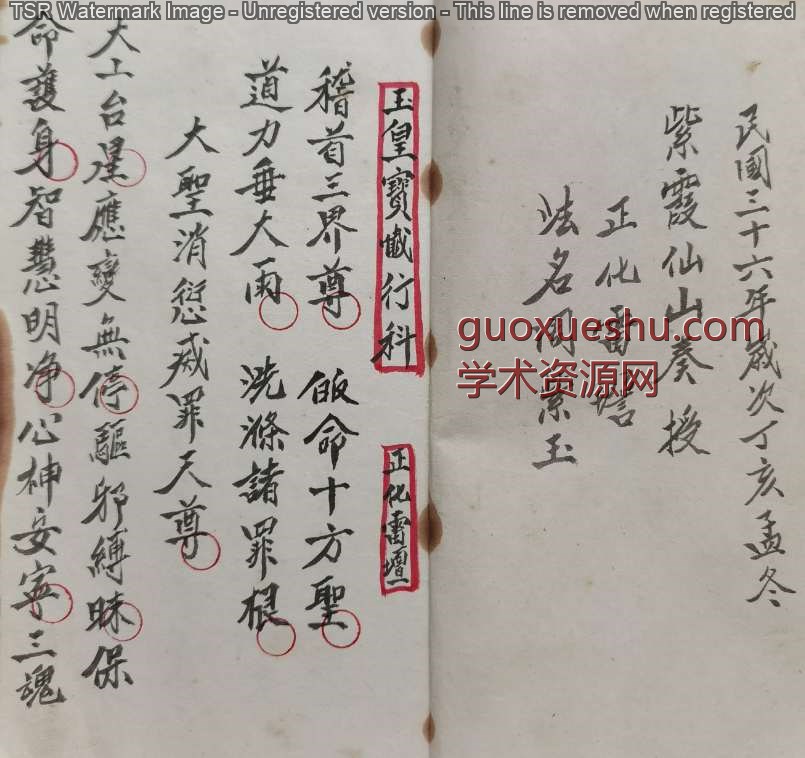 TSR Watermark Image - Unregistered version - This line is removed when registered
民國三十六年歲次丁亥孟冬
紫霞仙山奏授
正化雷壇
法名玉
guoxueshu.com
学术资源网
玉皇寶懺行科 正化雷壇
稽首三界尊 皈命十方聖
道力垂大雨 洗滌諸罪根
大聖消愆烕罪天尊
太上台星應變無停驅邪縛昧保
命護身智慧明净心神安寧三魂